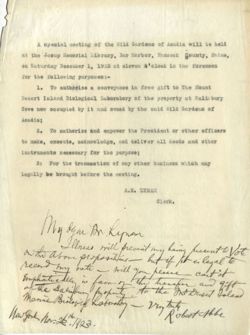 A special meeting of the Wild Gardens of Acadia will be held
at the Jesup Memorial Library, Bar Harbor, Hancock County, Maine,
on Saturday December 1, 1923 at eleven o'clock in the forenoon
for the following purposes:-
1. To authorize a conveyance in free gift to The Mount
Desert Island Biological Laboratory of the property at Salisbury
Cove now occupied by it and owned by the said Wild Gardens of
Acadia;
2. To authorize and empower the President or other officers
to make, execute, acknowledge, and deliver all deeds and other
instruments necessary for the purpose;
3. For the transaction of any other business which may
legally be brought before the meeting.
A.H. LYNAM
Clerk.
My dear Mr
Illness will prevent my being present to Vote
on the above proposition - but if it is legal to
receive my vote - will you please cast it
emphatically in favor of the transfer and gift
of the Salisbury property to the Mt Desert Island
Marine Biological Laboratory - Very truly
Robert Abbe
New York Nov. 1923.